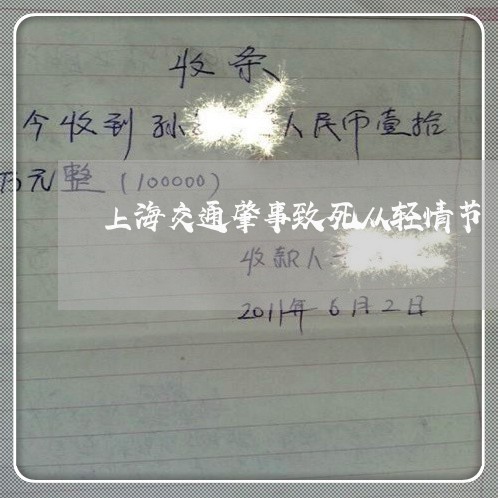 收条
今收到孙 人民币壹拾
万元整（100000）
上海交通肇事致死从轻情节
收款人
2011年6月2日